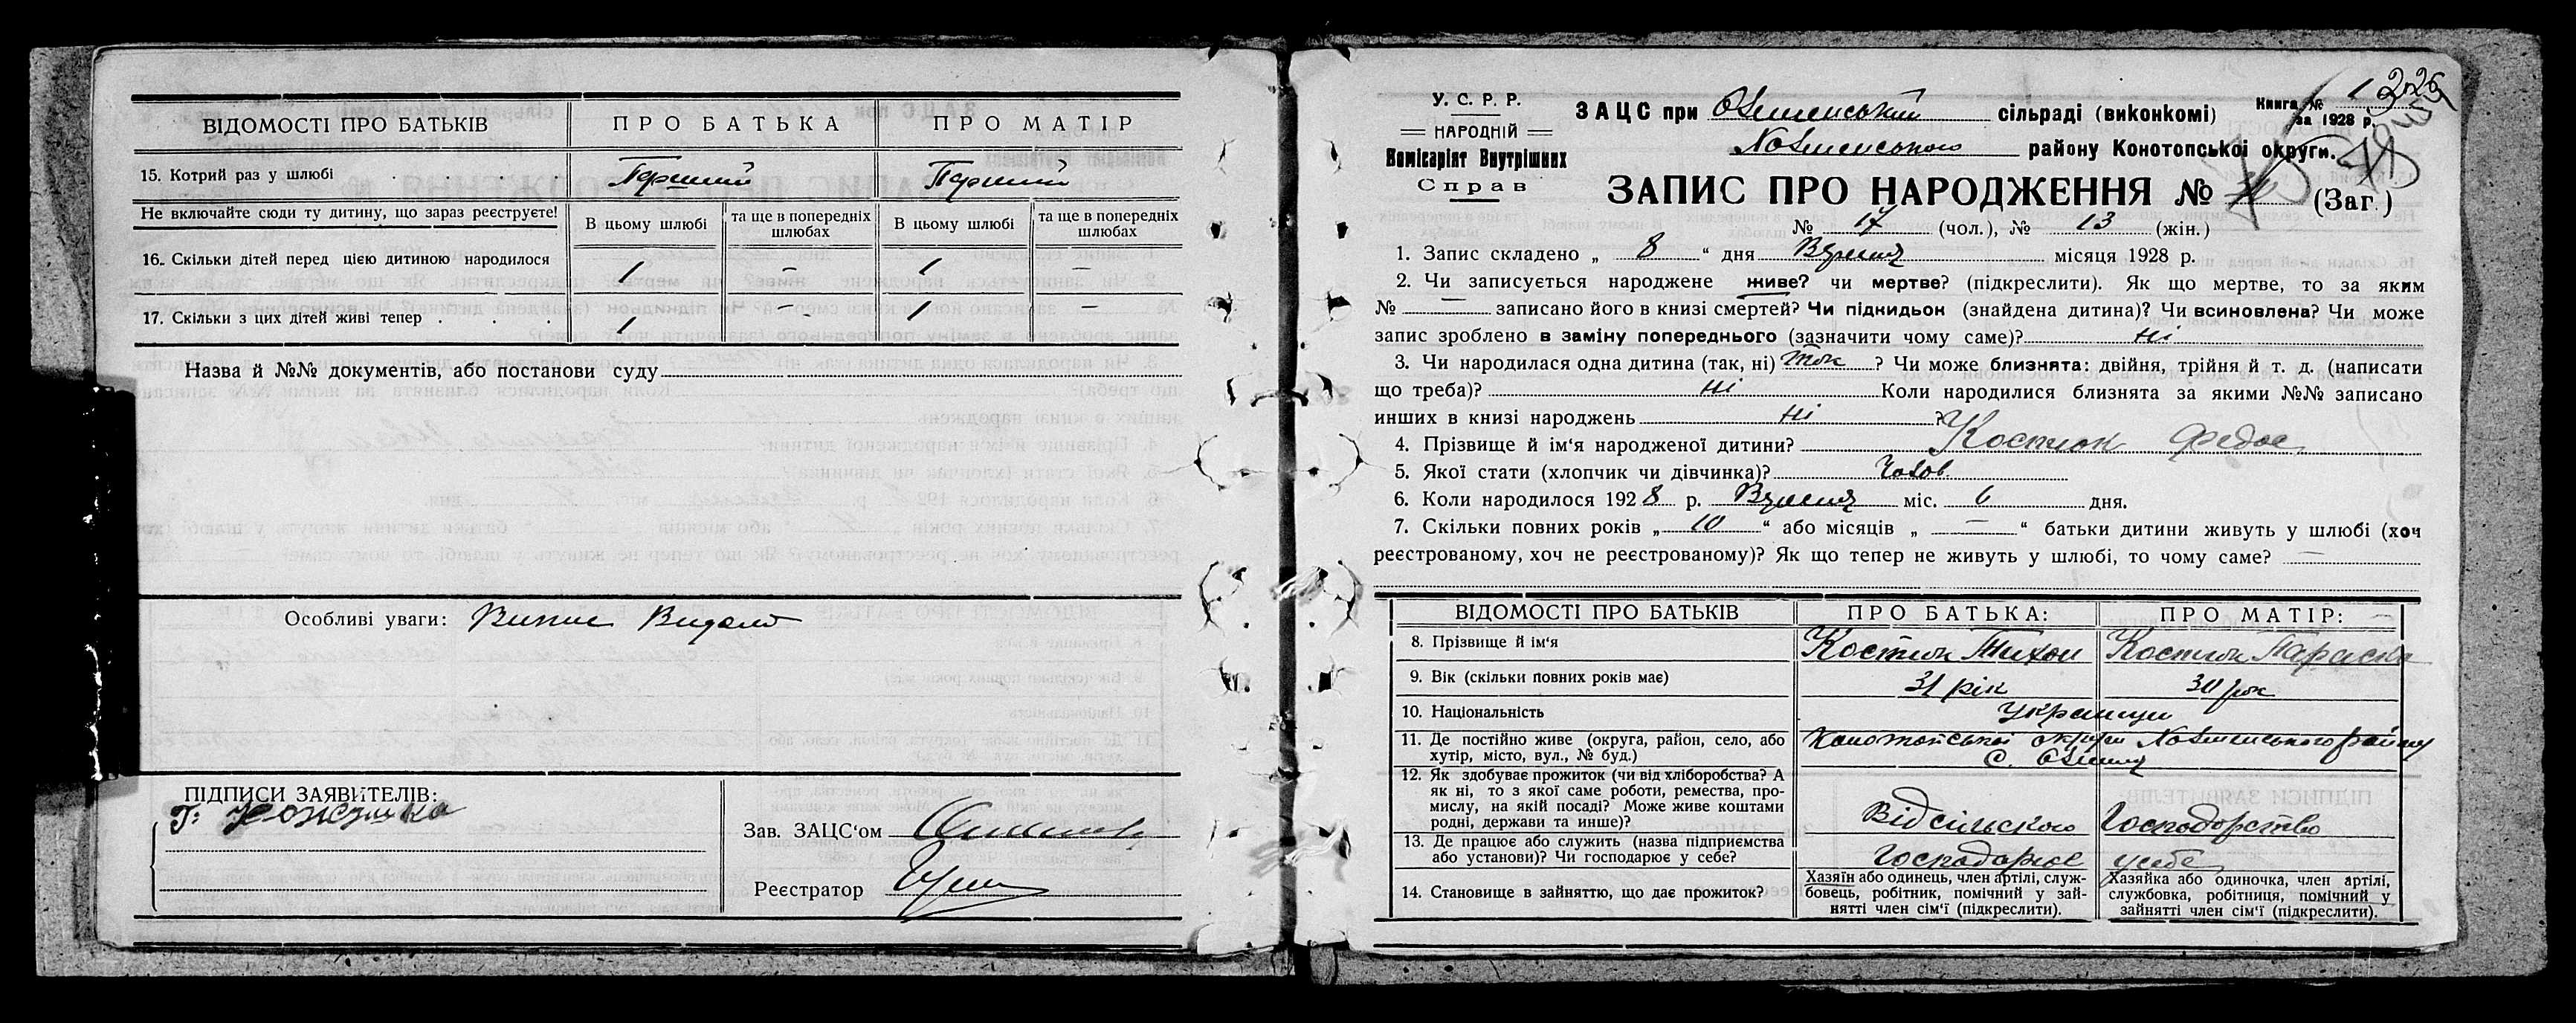 ВІДОМОСТІ ПРО БАТЬКІВ ПРО БАТЬКА ПРО МАТІР
15. Котрий раз у шлюбі Перший Перший
Не включайте сюди ту дитину, що зараз реєструєте! В цьому шлюбі та ще в попередніх шлюбах В цьому шлюбі та ще в попередніх шлюбах
16. Скільки дітей перед цією дитиною народилося 1 — 1 —
17. Скільки з цих дітей живі тепер 1 — 1 —
Назва й №№ документів, або постанови суду
Особливі уваги: Випис Видано
ПІДПИСИ ЗАЯВИТЕЛІВ:
Зав. ЗАЦС'ом
Реєстратор
У. С. Р. Р.
НАРОДНІЙ
Комісаріят Внутрішних
Справ
ЗАЦС при сільраді (виконкомі)
району Конотопської округи.
Книга № 1
за 1928 р.
ЗАПИС ПРО НАРОДЖЕННЯ № (Заг.)
№ 17 (чол.), № 13 (жін.)
1. Запис складено „ 8 “ дня Вересня місяця 1928 р.
2. Чи записується народжене живе? чи мертве? (підкреслити). Як що мертве, то за яким
№ — записано його в книзі смертей? Чи підкидьок (знайдена дитина)? Чи всиновлена? Чи може
запис зроблено в заміну попереднього (зазначити чому саме)? Ні
3. Чи народилася одна дитина (так, ні) Так ? Чи може близнята: двійня, трійня й т. д. (написати
що треба)? Ні Коли народилися близнята за якими №№ записано
инших в книзі народжень Ні ?
4. Прізвище й ім'я народженої дитини? Костюк Федос
5. Якої стати (хлопчик чи дівчинка)? Чолов.
6. Коли народилося 1928 р. Вересня міс. 6 дня.
7. Скільки повних років „ 10 “ або місяців „ — “ батьки дитини живуть у шлюбі (хоч
реєстрованому, хоч не реєстрованому)? Як що тепер не живуть у шлюбі, то чому саме? —
ВІДОМОСТІ ПРО БАТЬКІВ ПРО БАТЬКА: ПРО МАТІР:
8. Прізвище й ім'я Костюк Тихон Костюк Параска
9. Вік (скільки повних років має) 31 рік 30 рок
10. Національність Українци
11. Де постійно живе (округа, район, село, або
хутір, місто, вул., № буд.) Конотопської округи району
12. Як здобуває прожиток (чи від хліборобства? А
як ні, то з якої саме роботи, ремества, про-
мислу, на якій посаді? Може живе коштами
родні, держави та инше)? Від сільского Господарство
13. Де працює або служить (назва підприємства
або установи)? Чи господарює у себе? Господарює у себе
14. Становище в зайняттю, що дає прожиток?
Хазяїн або одинець, член артілі, служ-
бовець, робітник, помічний у зай-
нятті член сім'ї (підкреслити).
Хазяйка або одиночка, член артілі,
службовка, робітниця, помічний у
зайнятті член сім'ї (підкреслити).